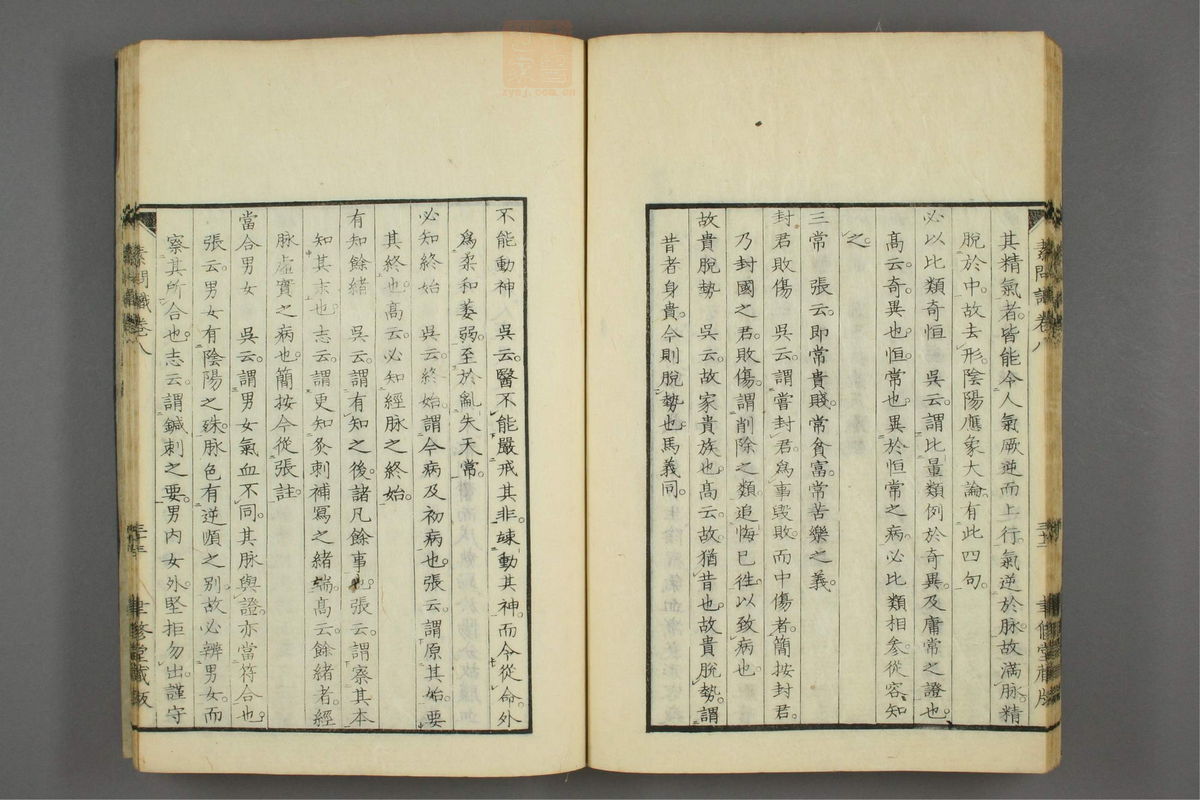 其精氣者。皆能令人氣厥逆而上行。氣逆於脉。故滿脉。精
脫於中。故去形。陰陽應象大論有此四句。
必以比類奇恒　吳云。謂比量類例於奇異。及庸常之證也。
高云。奇異也。恒。常也。異於恒常之病。必比類相參。從容知
之。
三常　張云。即常貴賤。常貧富。常苦樂之義。
封君敗傷　吳云。謂嘗封君。爲事毀敗。而中傷者。簡按封君。
乃封國之君。敗傷。謂削除之類。追悔已往。以致病也
故貴脫勢　吳云。故家貴族也。高云。故。猶昔也。故貴脫勢。謂
昔者身貴。今則脫勢也。馬義同。
素問識卷八
聿修堂藏版
不能動神　吳云。醫不能嚴戒其非。竦動其神。而令從命。外
爲柔和萎弱。至於亂失天常。
必知終始　吳云。終始。謂今病及初病也。張云。謂原其始。要
其終也。高云。必知經脉之終始。
有知餘緒　吳云。謂有知之後。諸凡餘事也。張云。謂察其本
知其末也。志云。謂更知灸刺補寫之緒端。高云。餘緒者。經
脉虛實之病也。簡按今從張註。
當合男女　吳云。謂男女氣血不同。其脉與證。亦當符合也。
張云。男女有陰陽之殊。脉色有逆順之別。故必辨男女。而
察其所合也。志云。謂鍼刺之要。男內女外。堅拒勿出。謹守
素問識卷八
三十三
聿修堂藏版